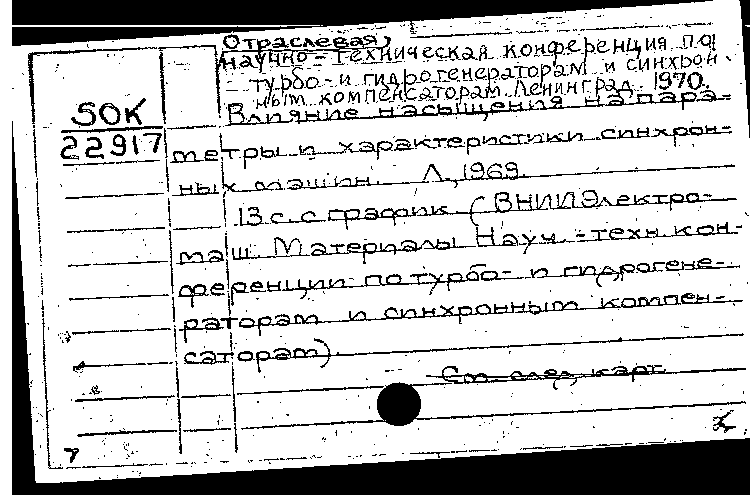 Отраслевая
научно-техническая конференция по
турбо- и гидрогенераторам и синхрон-
ным компенсаторам. Ленинград. 1970.
SOK
22917
Влияние насыщения на пара-
метры и характеристики синхрон-
ных машин. Л., 1969.
13 с. с график. (ВНИИЭлектро-
маш. Материалы Науч.-техн. кон-
ференции по турбо- и гидрогене-
раторам и синхронным компен-
саторам).
См. след. карт.